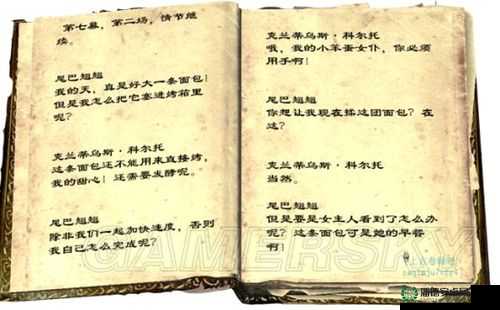 第七幕，第二场，情节继
续。
尾巴翘翘
我的天，真是好大一条面包！
但是我怎么把它塞进烤箱里
呢？
克兰蒂乌斯·科尔托
这条面包还不能用来直接烤，
我的甜心！还需要发酵呢。
尾巴翘翘
除非我们一起加快速度，否则
我自己怎么完成呢？
克兰蒂乌斯·科尔托
哦，我的小笨蛋女仆，你必须
用手啊！
尾巴翘翘
你想让我现在揉这团面包？在
这？
克兰蒂乌斯·科尔托
当然。
尾巴翘翘
但是要是女主人看到了怎么办
呢？这条面包可是她的早餐
啊！
GAMERSKY